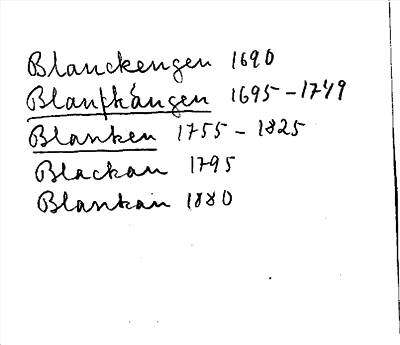 Blanckengen 1690
Blanfkängen 1695-1749
Blanken 1755-1825
Blackan 1795
Blankan 1880